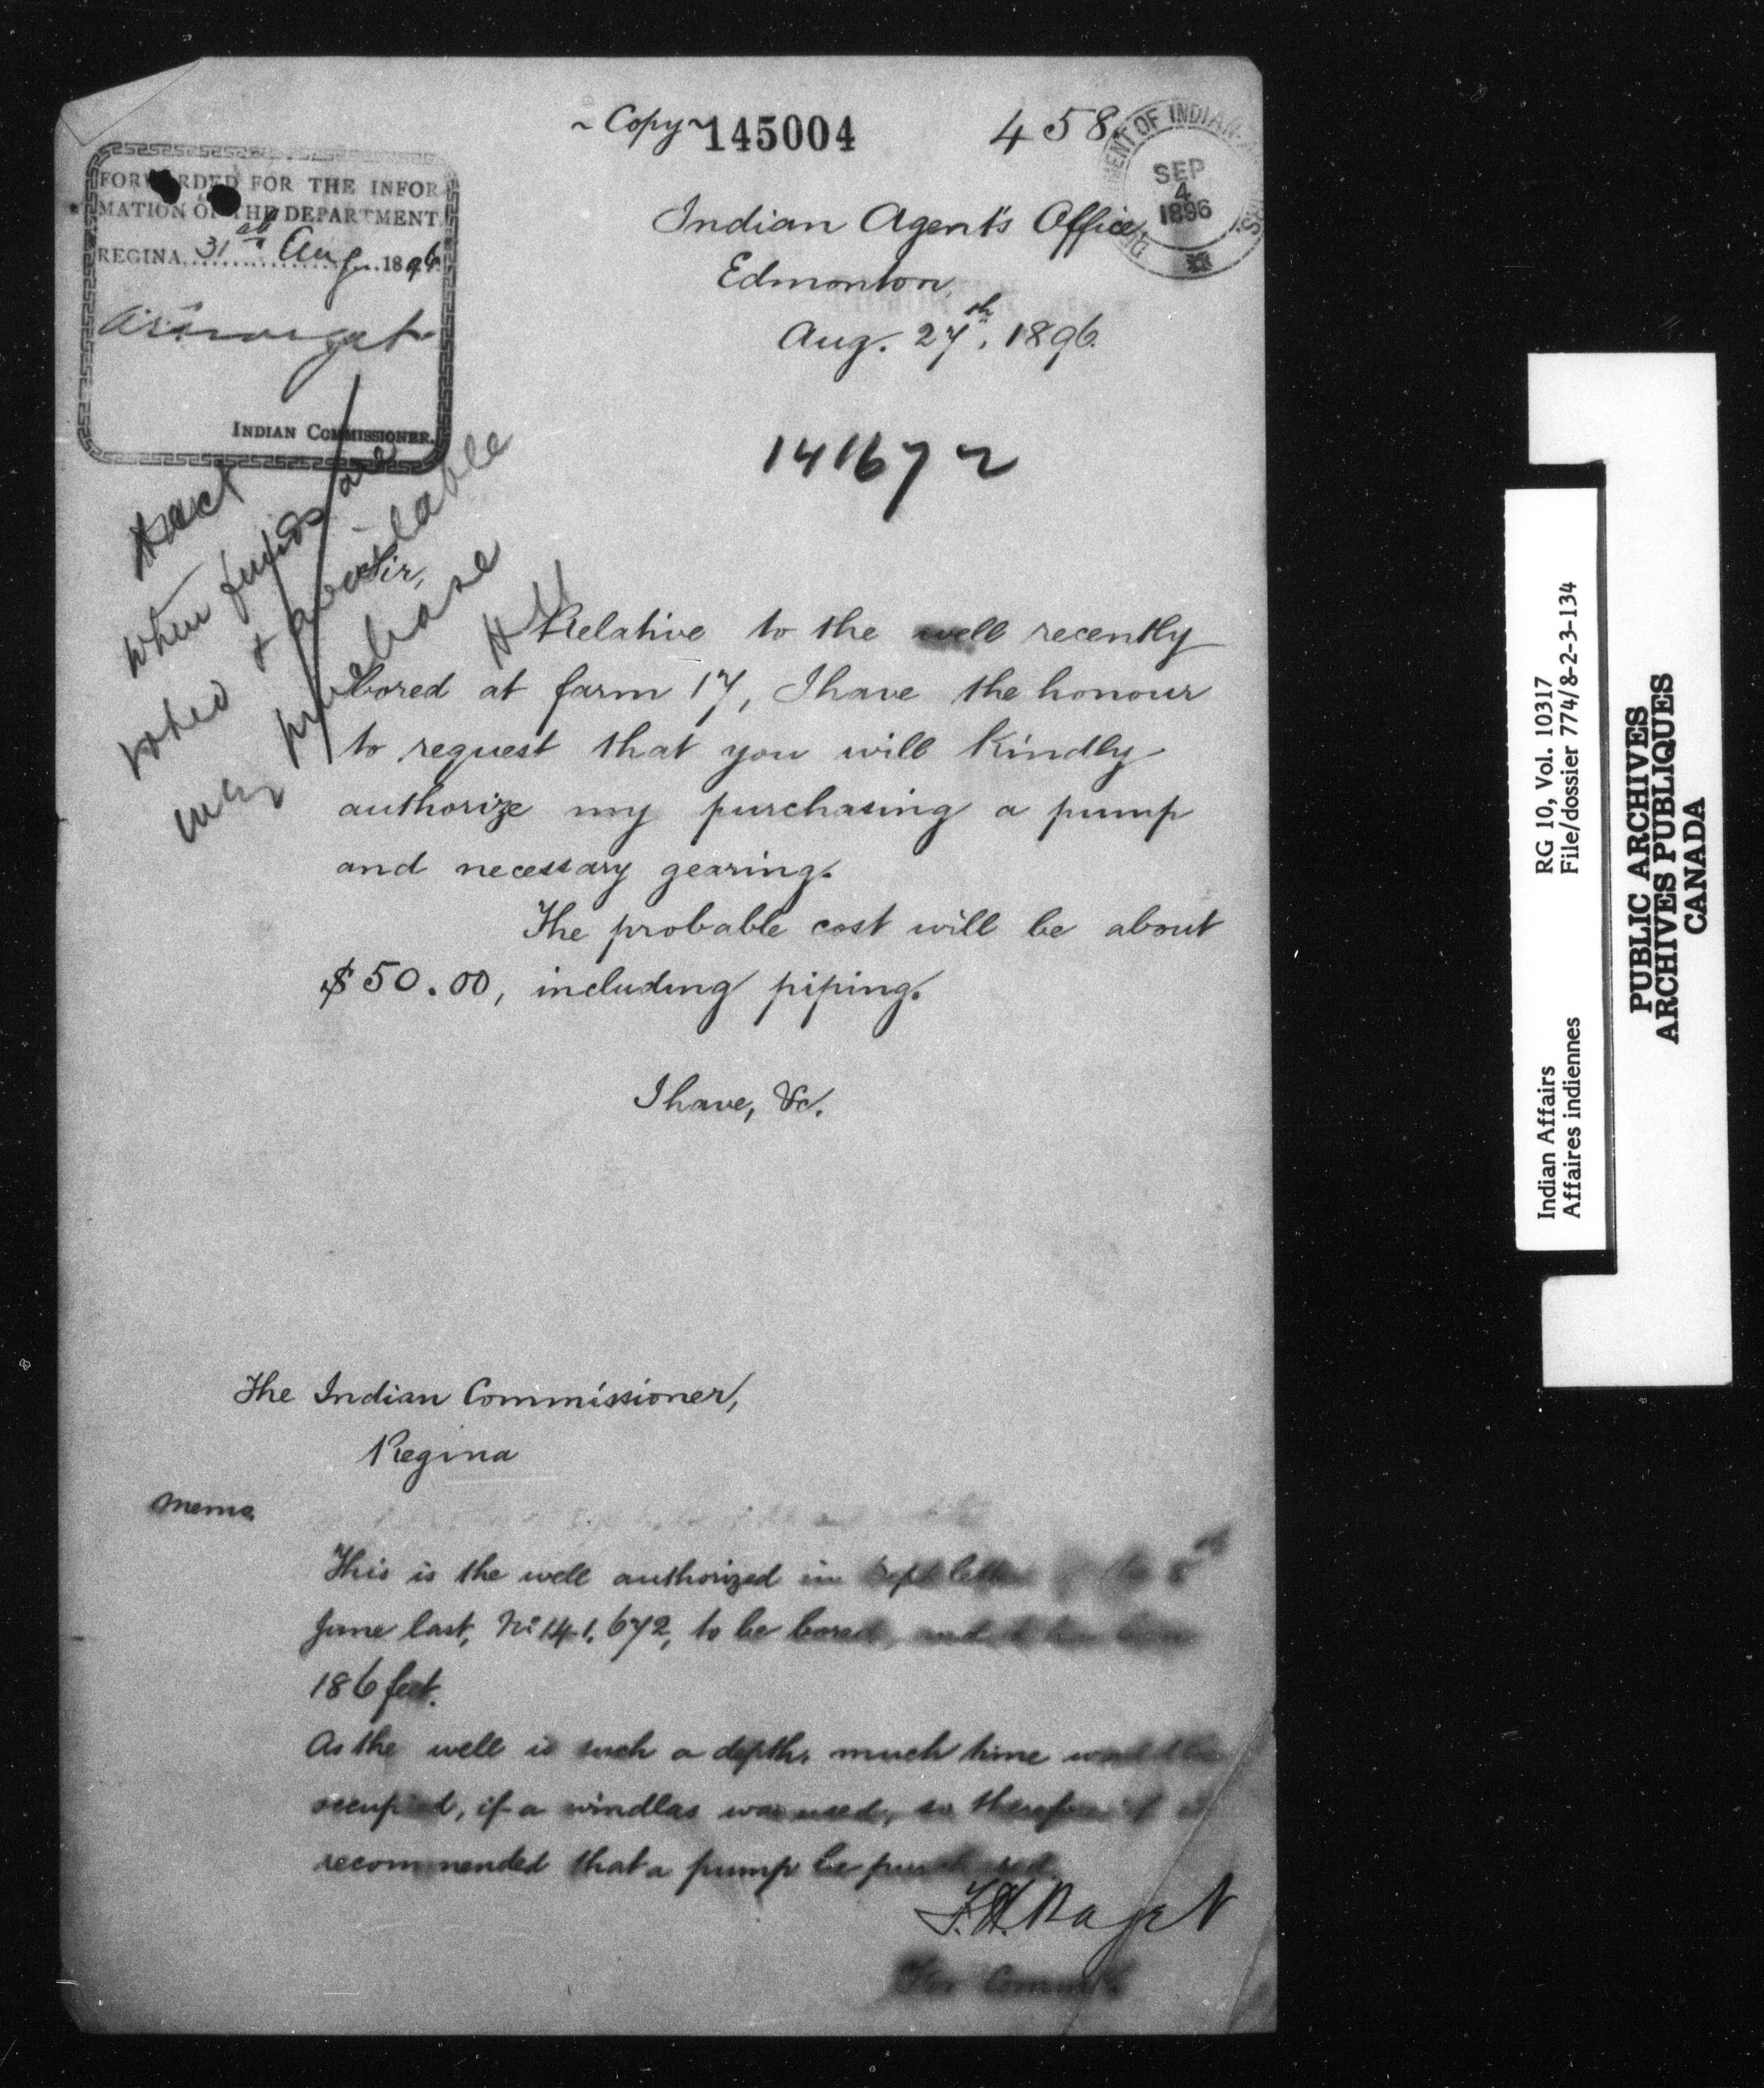 ~ Copy ~ 145004 458
DEPARTMENT OF INDIAN AFFAIRS
SEP
4
1896
FORWARDED FOR THE INFOR-
MATION OF THE DEPARTMENT.
REGINA, 31st Aug. 1896
INDIAN COMMISSIONER.
Indian Agent's Office,
Edmonton,
Aug. 27th, 1896.
141672
when funds are
voted & available
may purchase
Sir,
Relative to the well recently
bored at farm 17, I have the honour
to request that you will kindly
authorize my purchasing a pump
and necessary gearing.
The probable cost will be about
$50.00, including piping.
I have, &c.
The Indian Commissioner,
Regina
Memo.
This is the well authorized in Dept letter of the 8th
June last, No 141,672, to be bored, and
186 feet.
As the well is such a depth, much time would be
occupied, if a windlas was used, so therefore it is
recommended that a pump be purchased.
F.H. Paget
For Commr.
Indian Affairs RG 10, Vol. 10317
Affaires indiennes File/dossier 774/8-2-3-134
PUBLIC ARCHIVES
ARCHIVES PUBLIQUES
CANADA